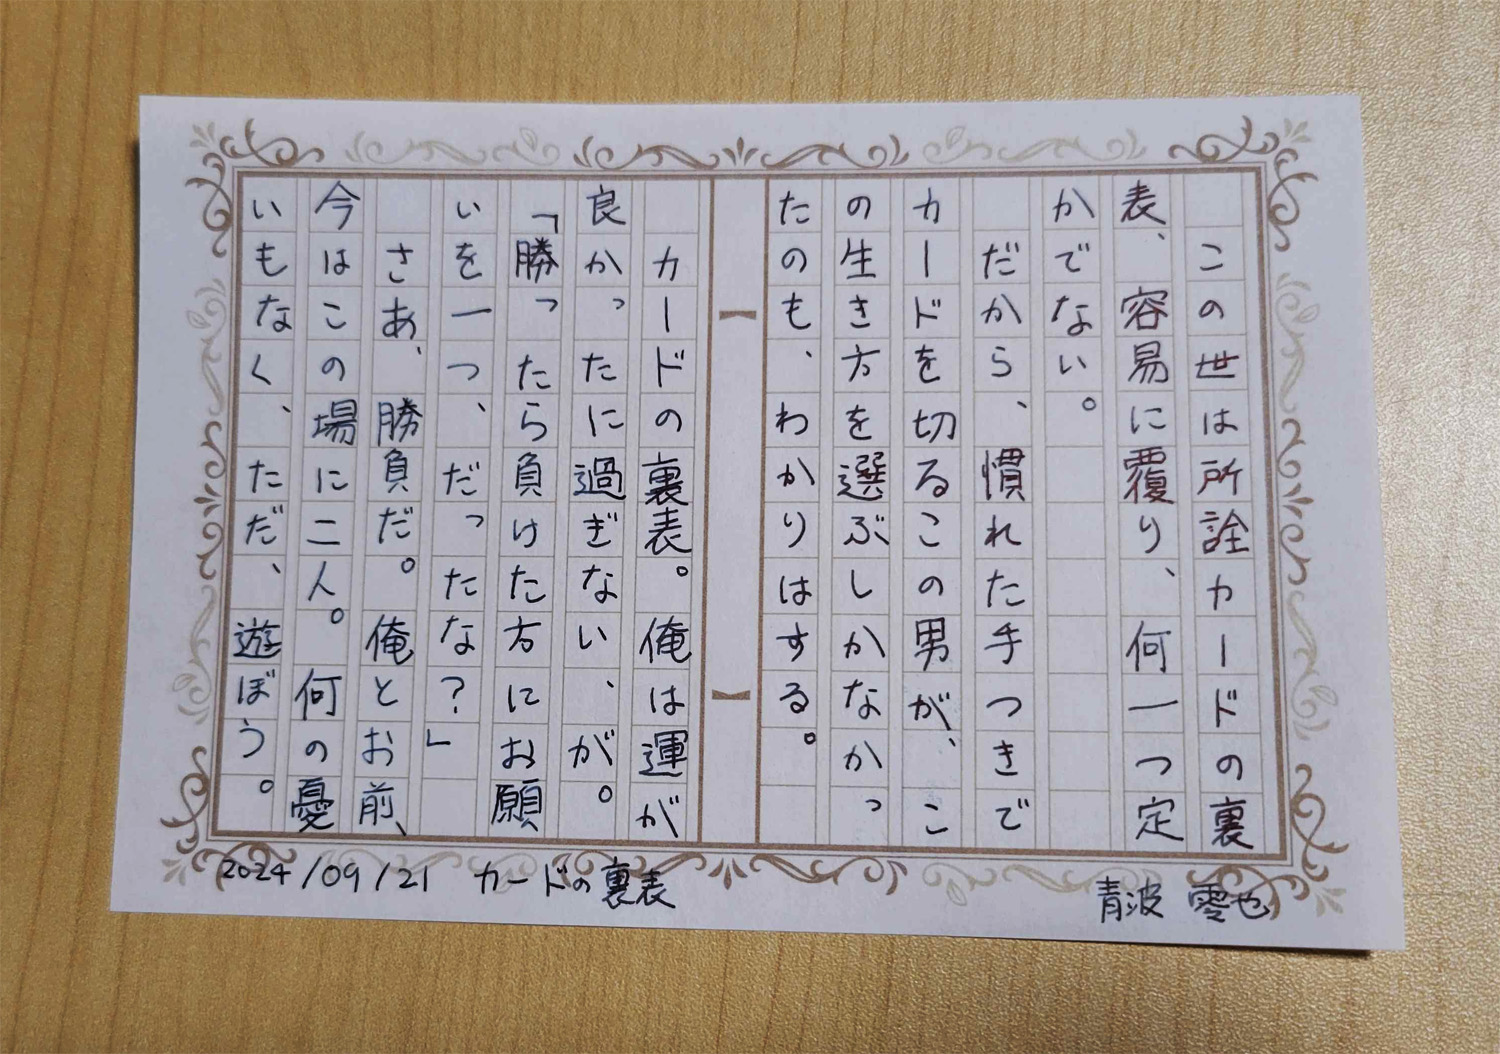 この世は所詮カードの裏
表、容易に覆り、何一つ定
かでない。
だから、慣れた手つきで
カードを切るこの男が、こ
の生き方を選ぶしかなかっ
たのも、わかりはする。
カードの裏表。俺は運が
良かったに過ぎない、が。
「勝ったら負けた方にお願
いを一つ、だったな?」
さあ、勝負だ。俺とお前、
今はこの場に二人。何の憂
いもなく、ただ、遊ぼう。
2024/09/21 カードの裏表
青波 零也